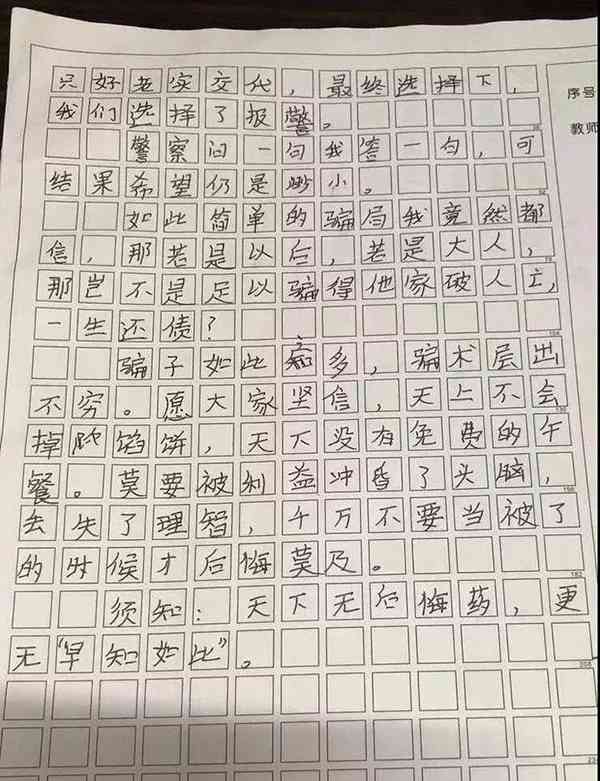 只好老实交代，最终选择下，
序号
我们选择了报警。
教师
警察问一句我答一句，可
结果希望仍是渺小。
如此简单的骗局我竟然都
信，那若是以后，若是大人，
那岂不是足以骗得他家破人亡，
一生还债？
骗子如此之多，骗术层出
不穷。愿大家坚信，天上不会
掉陷馅饼，天下没有免费的午
餐。莫要被利益冲昏了头脑，
去失了理智，千万不要当被了
的时候才后悔莫及。
须知：天下无后悔药，更
无“早知如此”。